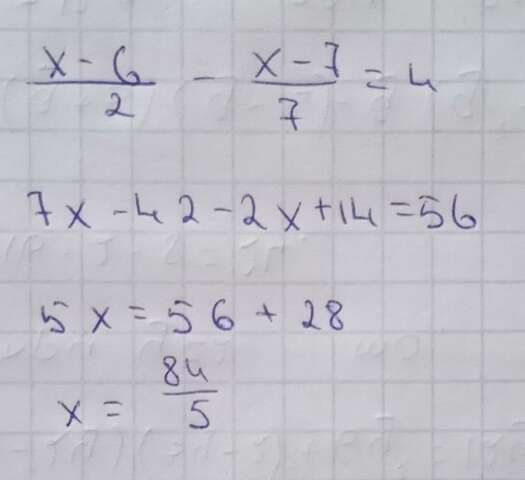 x - 6 / 2 - x - 7 / 7 = 4
7x - 42 - 2x + 14 = 56
5x = 56 + 28
x = 84 / 5